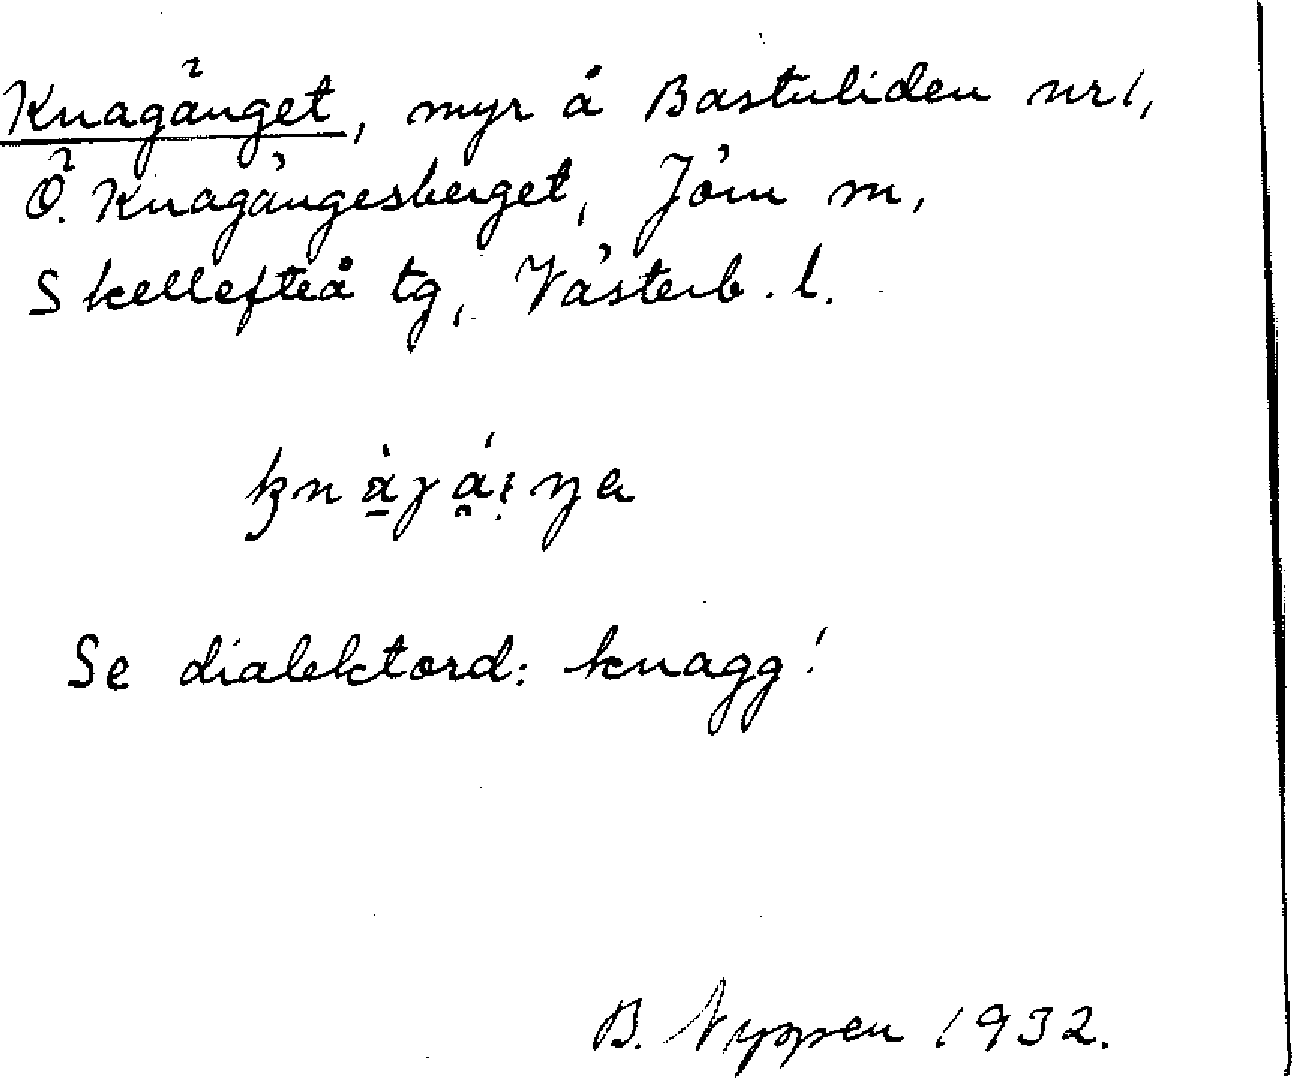 Knagänget, myr å Bastuliden nr 1,
Ö. Knagängesberget, Jörn sn,
Skellefteå tg, Västerb. l.
Se dialektord: knagg!
B. 1932.